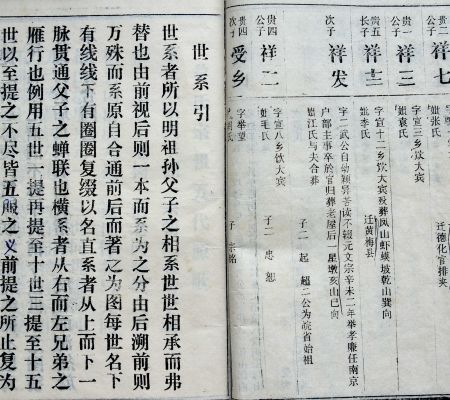 贵二公子 祥七
妣张氏 迁德化官排夹
贵一公子 祥三
字宣三乡饮大宾
妣袁氏
贵五长子 祥十三
字宣十二乡饮大宾殁葬凤山虾蟆坡乾山巽向
妣李氏 迁黄梅县
次子 祥发
字二武公自幼颖异苦读不辍元文宗辛未二年举孝廉任南京
户部主事卒於官归葬老屋后一星墩亥山巳向
妣江氏与夫合葬 子二 起 超 二公为皖省始祖
贵四公子 祥二
字宣八乡饮大宾
妣毛氏 子二 忠 恕
贵四次子 受乡
字举望
子 宗铭
世系引
世系者所以明祖孙父子之相系世世相承而弗
替也由前视后则一本而系为之分由后溯前则
万殊而系原自合通前后而著之为图每世名下
有线线下有圈圈复缀以名直系者从上而下一
脉贯通父子之蝉联也横系者从右而左兄弟之
雁行也例用五世一提再提至十世三提至十五
世以至提之不尽皆五服之义前提之所止复为